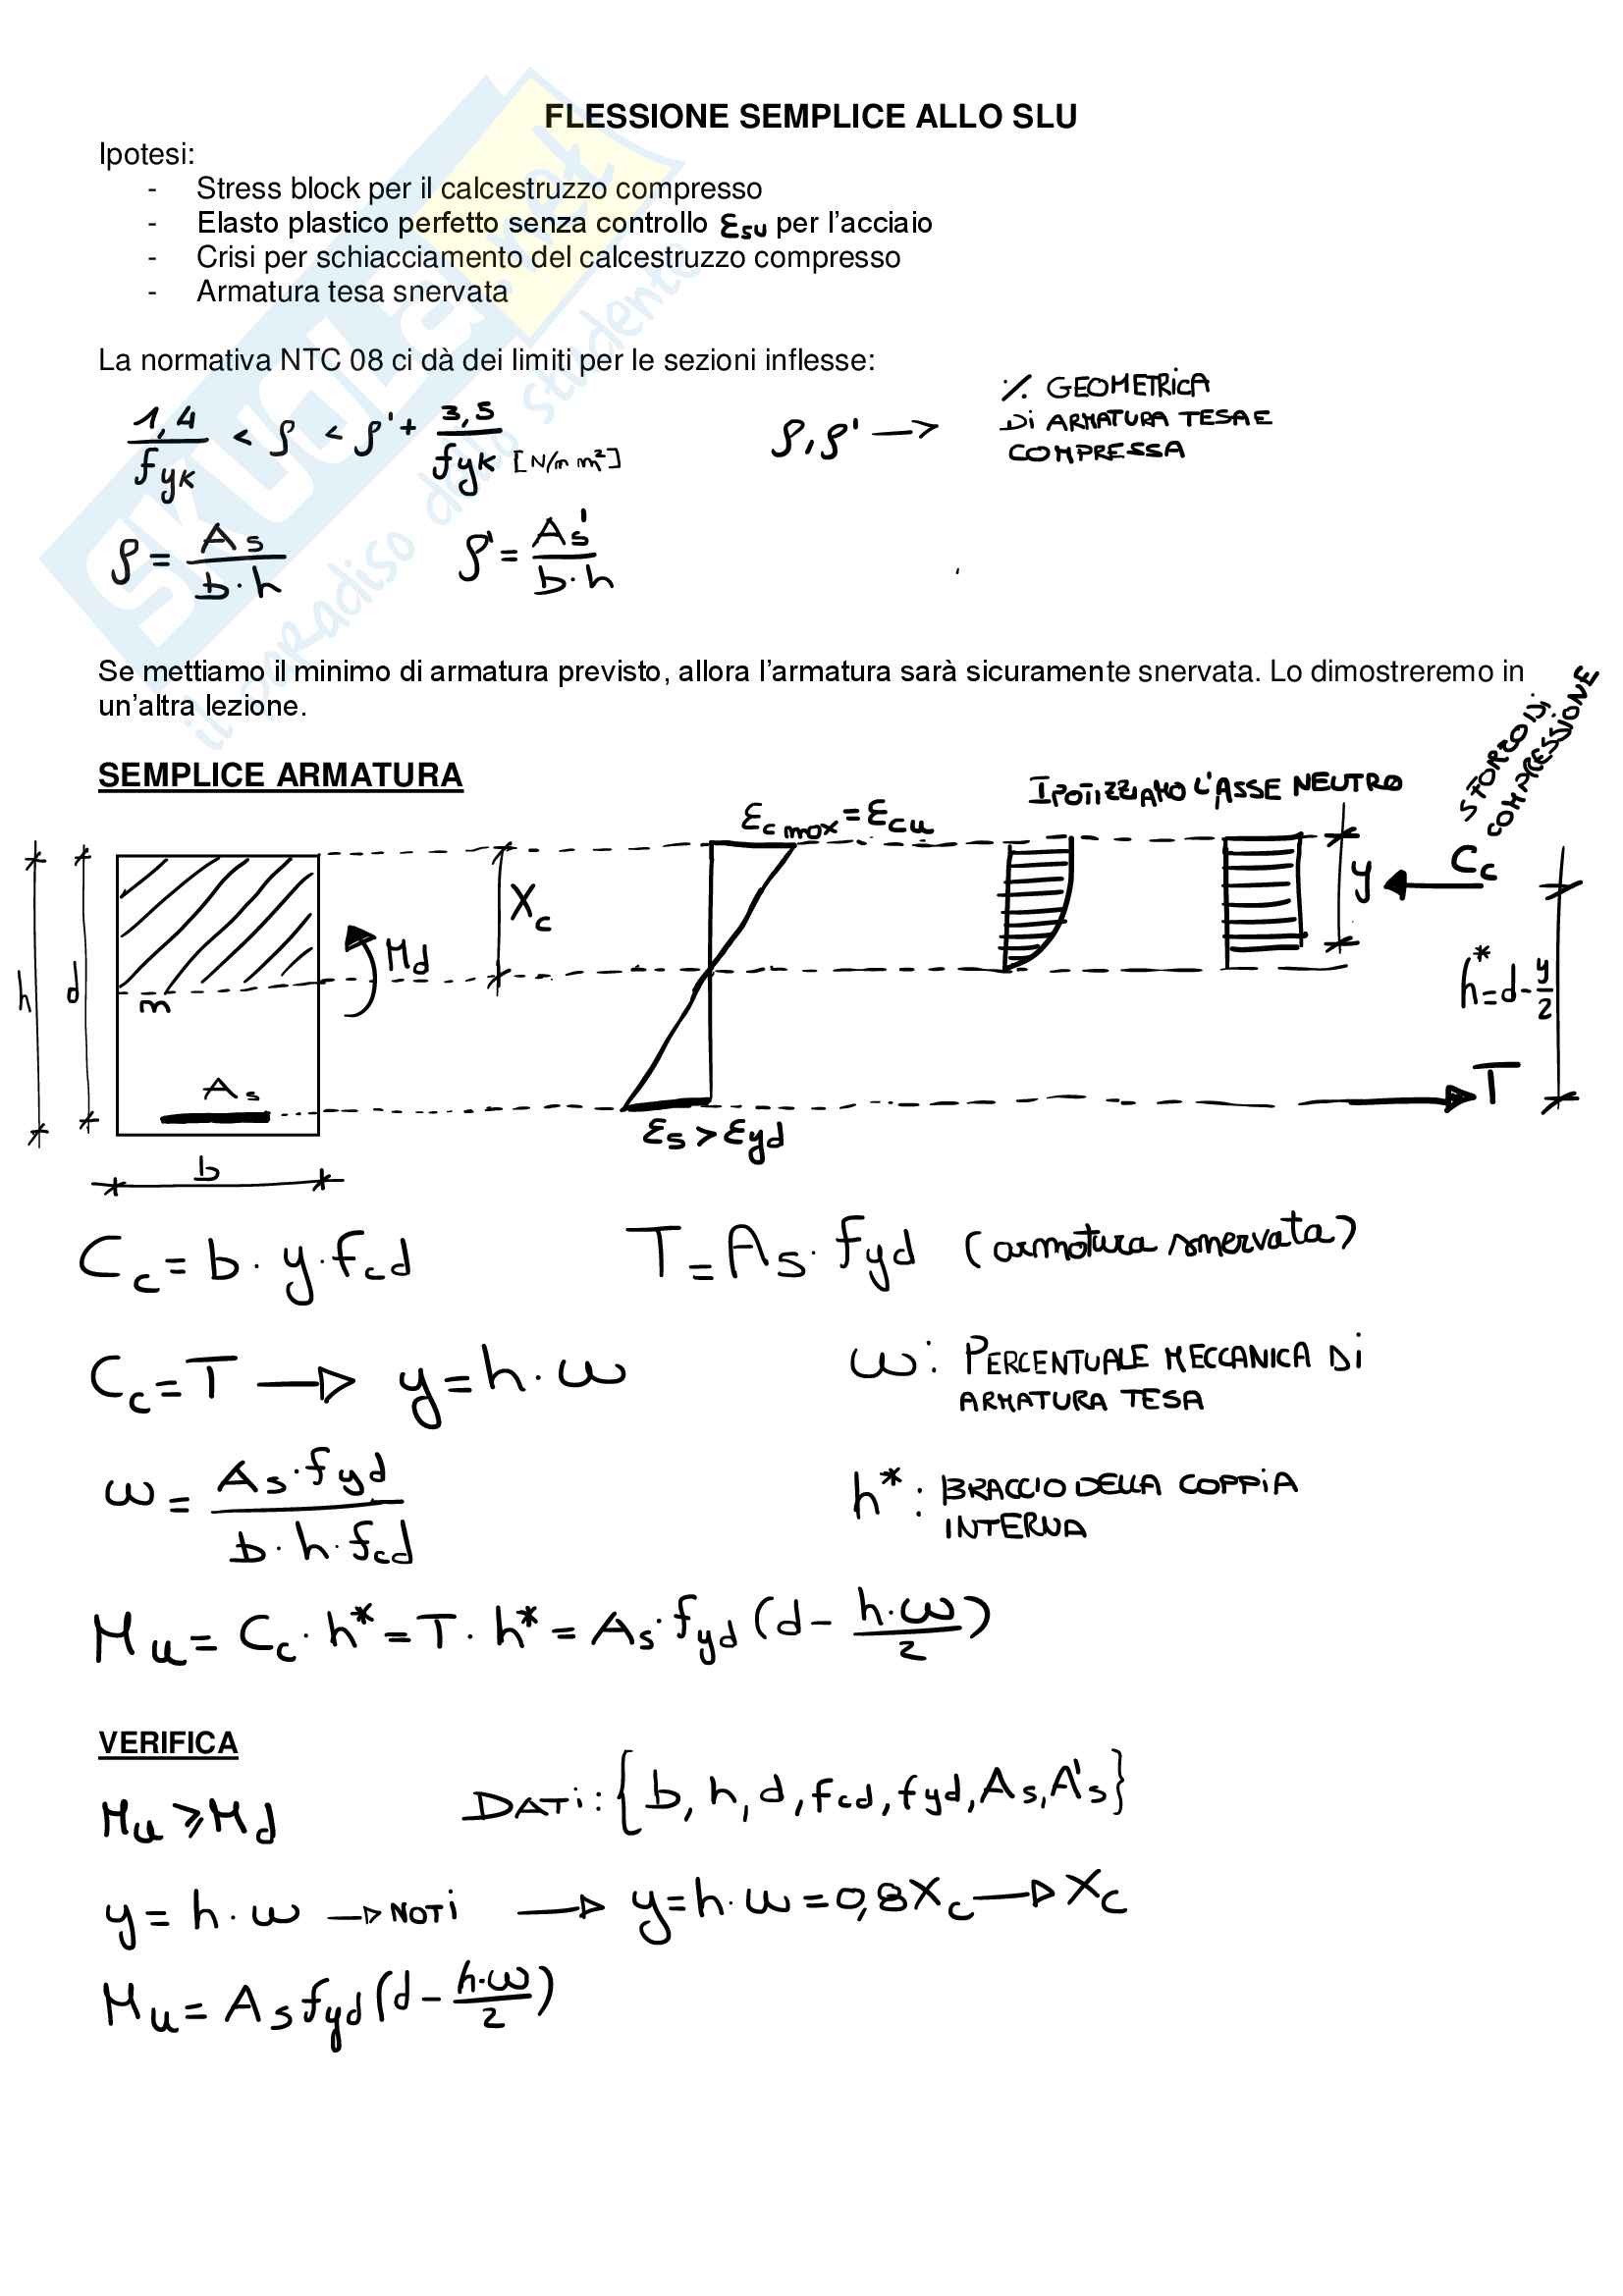 FLESSIONE SEMPLICE ALLO SLU
Ipotesi:
- Stress block per il calcestruzzo compresso
- Elasto plastico perfetto senza controllo εsu per l'acciaio
- Crisi per schiacciamento del calcestruzzo compresso
- Armatura tesa snervata
La normativa NTC 08 ci dà dei limiti per le sezioni inflesse:
1,4/fyk < ρ < ρ' + 3,5/fyk [N/mm²]
ρ, ρ' → % GEOMETRICA
DI ARMATURA TESA E
COMPRESSA
ρ = As/(b·h)
ρ' = As'/(b·h)
Se mettiamo il minimo di armatura previsto, allora l'armatura sarà sicuramente snervata. Lo dimostreremo in
un'altra lezione.
SEMPLICE ARMATURA
IPOTIZZIAMO L'ASSE NEUTRO
SFORZO DI
COMPRESSIONE
εc max = εcu
h
d
m
As
b
Md
Xc
y
Cc
h* = d - y/2
T
εs > εyd
Cc = b · y · fcd
T = As · fyd (armatura snervata)
Cc = T → y = h · ω
ω: PERCENTUALE MECCANICA DI
ARMATURA TESA
ω = As·fyd/(b·h·fcd)
h*: BRACCIO DELLA COPPIA
INTERNA
Mu = Cc · h* = T · h* = As · fyd (d - h·ω/2)
VERIFICA
Mu ⩾ Md
DATI: {b, h, d, fcd, fyd, As, A's}
y = h · ω → NOTI → y = h · ω = 0,8Xc → Xc
Mu = As fyd (d - h·ω/2)
SKUOLA.net
il paradiso dello studente